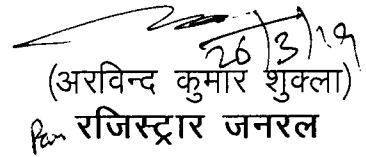 26/3/19
(अरविन्द कुमार शुक्ला)
रजिस्ट्रार जनरल